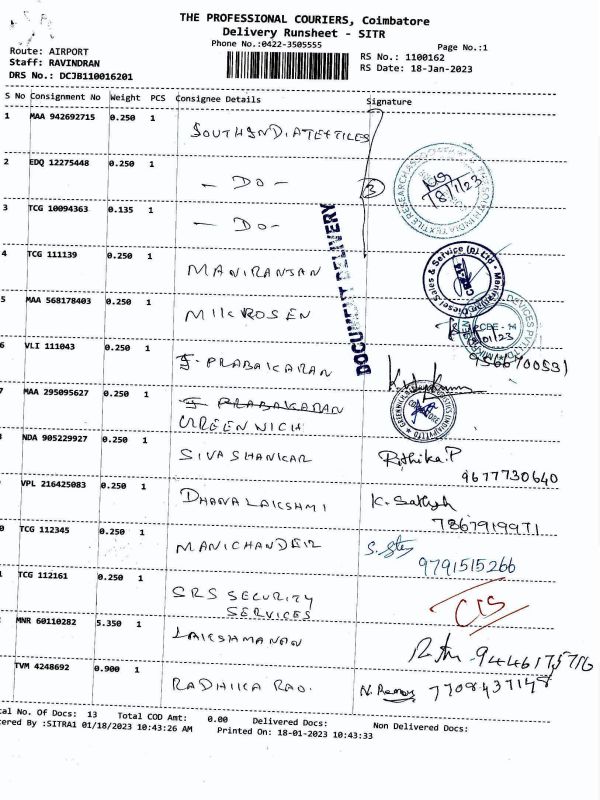 THE PROFESSIONAL COURIERS, Coimbatore
Delivery Runsheet - SITR
Phone No.:0422-3505555
Page No.:1
Route: AIRPORT
Staff: RAVINDRAN
DRS No.: DCJB110016201
RS No.: 1100162
RS Date: 18-Jan-2023
S No Consignment No Weight PCS Consignee Details Signature
1 MAA 942692715 0.250 1 SOUTHINDIATEXTILES
2 EDQ 12275448 0.250 1 - DO - 3
18/1/23
3 TCG 10094363 0.135 1 - DO -
DOCUMENT DELIVERY
4 TCG 111139 0.250 1 MANIRANJAN
5 MAA 568178403 0.250 1 MIKROSEN
01/23
9566700531
6 VLI 111043 0.250 1 J. PRABAKARAN
7 MAA 295095627 0.250 1 J PRABAKARAN
GREENWICH
NDA 905229927 0.250 1 SIVASHANKAR Rithika.P
9677730640
VPL 216425083 0.250 1 DHANALAKSHMI K. Sathish
7867919971
0 TCG 112345 0.250 1 MANICHANDER
9791515266
TCG 112161 0.250 1 SRS SECURITY
SERVICES
CIS
MNR 60110282 5.350 1 LAKSHMANAN
TVM 4248692 0.900 1 RADHIKA RAO. 7708437148
al No. Of Docs: 13 Total COD Amt: 0.00 Delivered Docs: Non Delivered Docs:
ered By :SITRA1 01/18/2023 10:43:26 AM Printed On: 18-01-2023 10:43:33